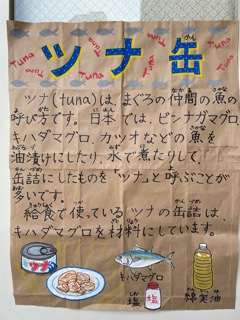 Tuna Tuna Tuna Tuna
ツナ缶
ツナ(tuna)は、まぐろの仲間の魚の
呼び方です。日本では、ビンナガマグロ
キハダマグロ、カツオなどの魚を
油漬けにしたり、水で煮たりして、
缶詰にしたものを「ツナ」と呼ぶことが
多いです。
給食で使っているツナの缶詰は、
キハダマグロを材料にしています。
ツナ
キハダマグロ
塩
塩
綿実油